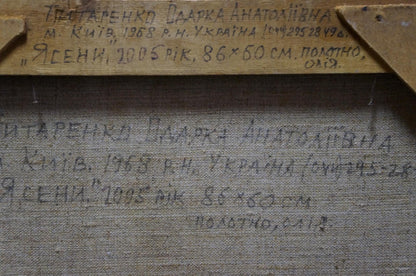 Одарка Анатоліївна
м. Київ, 1968 р.н. Україна (044)295 28 49
„Ясени", 2005 рік, 86×60 см, полотно,
олія.
Одарка Анатоліївна
Київ, 1968 р.н., Україна (044)295-28-
Ясени," 2005 рік 86×60 см
полотно, олія